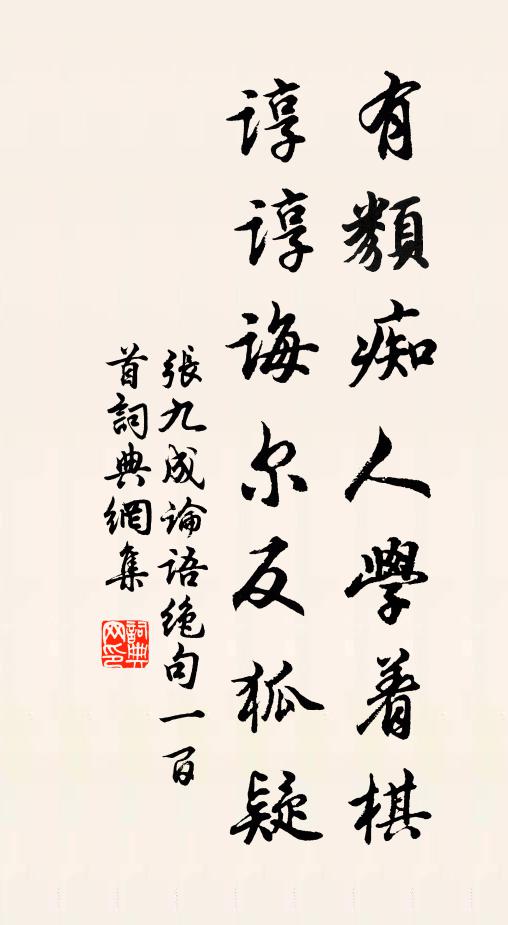 有類痴人學着棋
諄諄誨尔反狐疑
張九成論语绝句一百
首詞典網集
詞典
网印